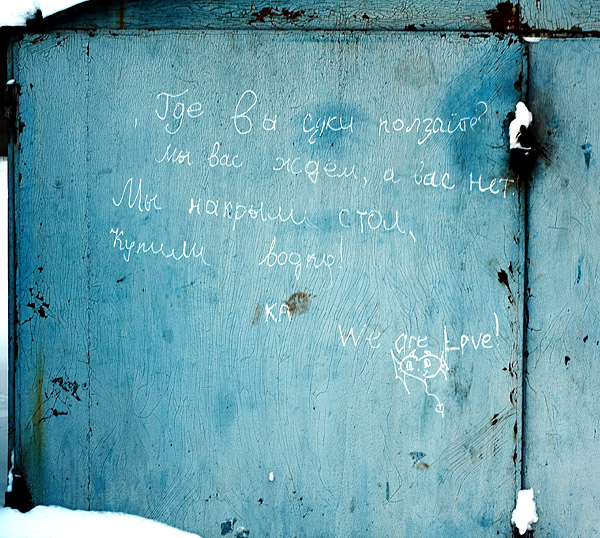 Где вы суки ползаите?
мы вас ждём, а вас нет.
Мы накрыли стол,
Купили водку!
КА
We are Love!